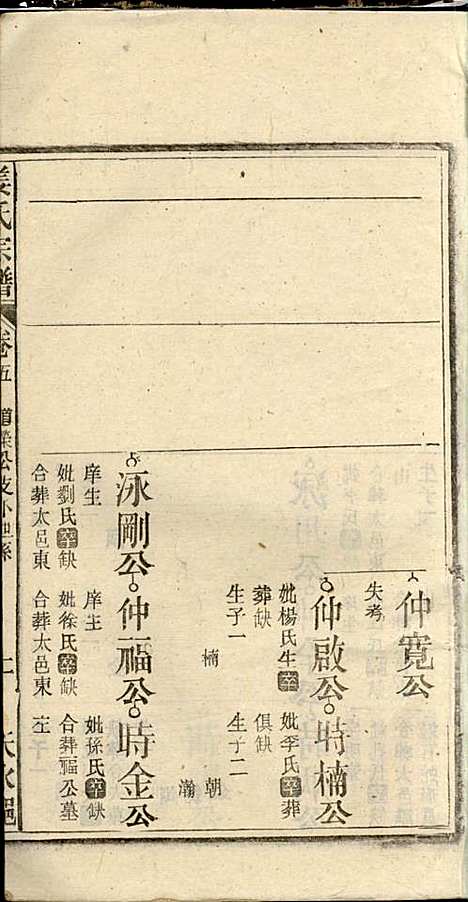 仲寬公
失考
仲啟公
妣楊氏生卒
葬缺
生子一
楠
時楠公
妣李氏卒葬
俱缺
生子二
朝
瀚
泳剛公
庠生
妣劉氏卒缺
合葬太邑東
仲福公
庠生
妣徐氏卒缺
合葬太邑東
時金公
妣孫氏卒缺
合葬福公墓
左
姜氏宗譜
卷五
公支外